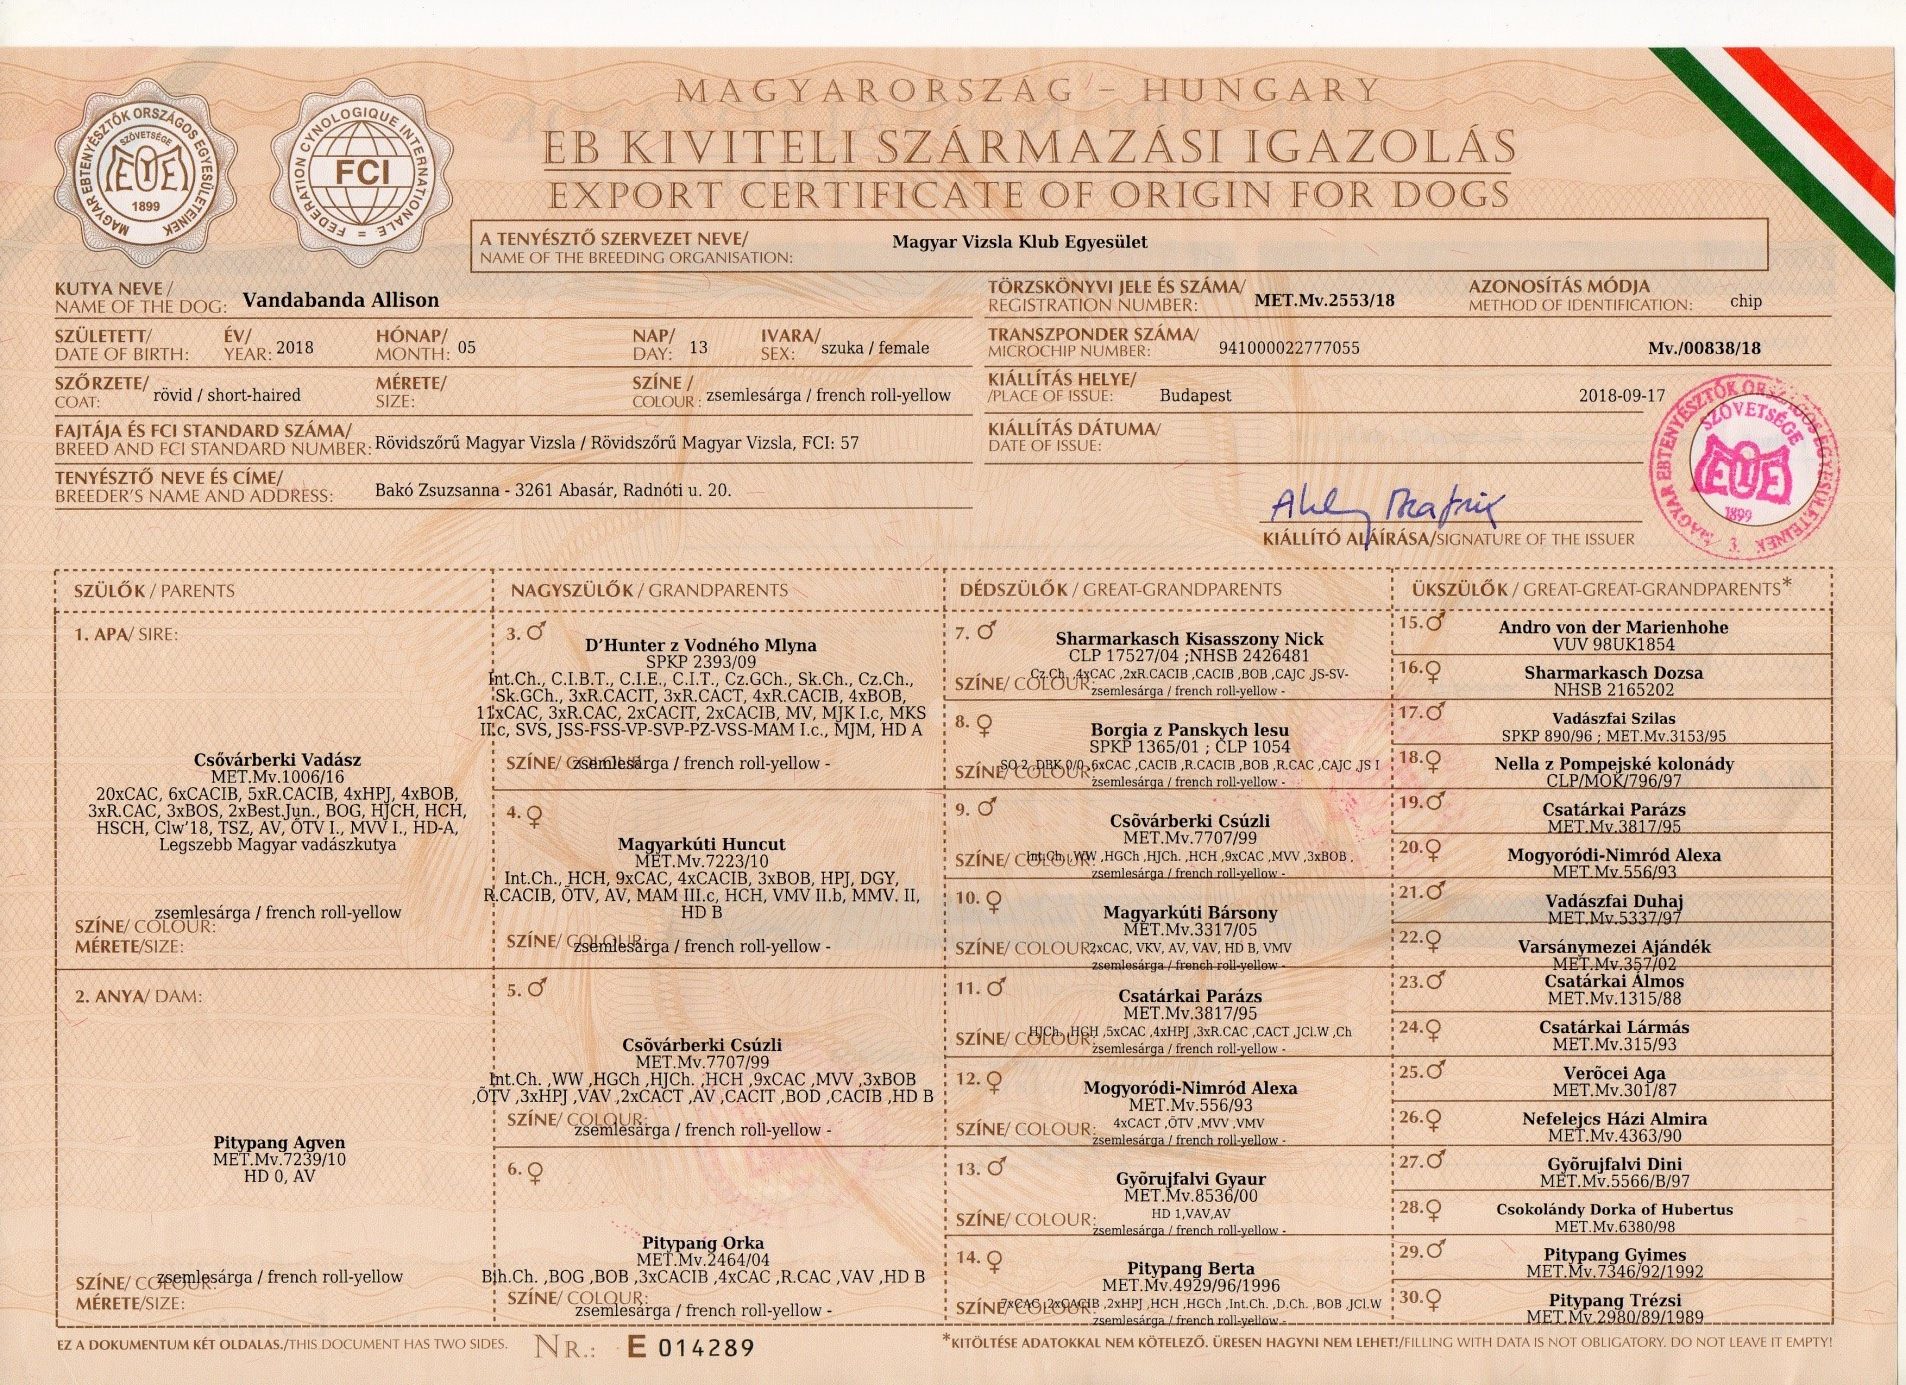 MAGYARORSZÁG - HUNGARY
EB KIVITELI SZÁRMAZÁSI IGAZOLÁS
EXPORT CERTIFICATE OF ORIGIN FOR DOGS
MAGYAR EBTENYÉSZTŐK ORSZÁGOS EGYESÜLETEINEK
SZÖVETSÉGE
MEOE
1899
FEDERATION CYNOLOGIQUE INTERNATIONALE
FCI
A TENYÉSZTŐ SZERVEZET NEVE/ Magyar Vizsla Klub Egyesület
NAME OF THE BREEDING ORGANISATION:
KUTYA NEVE /
NAME OF THE DOG: Vandabanda Allison
TÖRZSKÖNYVI JELE ÉS SZÁMA/
REGISTRATION NUMBER: MET.Mv.2553/18
AZONOSÍTÁS MÓDJA
METHOD OF IDENTIFICATION: chip
SZÜLETETT/ ÉV/ HÓNAP/ NAP/ IVARA/
DATE OF BIRTH: YEAR: 2018 MONTH: 05 DAY: 13 SEX: szuka / female
TRANSZPONDER SZÁMA/
MICROCHIP NUMBER: 941000022777055 Mv./00838/18
SZŐRZETE/ MÉRETE/ SZÍNE /
COAT: rövid / short-haired SIZE: COLOUR: zsemlesárga / french roll-yellow
KIÁLLÍTÁS HELYE/
/PLACE OF ISSUE: Budapest 2018-09-17
FAJTÁJA ÉS FCI STANDARD SZÁMA/
BREED AND FCI STANDARD NUMBER: Rövidszőrű Magyar Vizsla / Rövidszőrű Magyar Vizsla, FCI: 57
KIÁLLÍTÁS DÁTUMA/
DATE OF ISSUE:
TENYÉSZTŐ NEVE ÉS CÍME/
BREEDER'S NAME AND ADDRESS: Bakó Zsuzsanna - 3261 Abasár, Radnóti u. 20.
KIÁLLÍTÓ ALÁÍRÁSA/SIGNATURE OF THE ISSUER
MAGYAR EBTENYÉSZTŐK ORSZÁGOS EGYESÜLETEINEK
SZÖVETSÉGE
MEOE
1899
3.
SZÜLŐK / PARENTS
NAGYSZÜLŐK / GRANDPARENTS
DÉDSZÜLŐK / GREAT-GRANDPARENTS
ÜKSZÜLŐK / GREAT-GREAT-GRANDPARENTS*
1. APA/ SIRE:
Csővárberki Vadász
MET.Mv.1006/16
20xCAC, 6xCACIB, 5xR.CACIB, 4xHPJ, 4xBOB,
3xR.CAC, 3xBOS, 2xBest.Jun., BOG, HJCH, HCH,
HSCH, Clw'18, TSZ, AV, ŐTV I., MVV I., HD-A,
Legszebb Magyar vadászkutya
zsemlesárga / french roll-yellow
SZÍNE/ COLOUR:
MÉRETE/SIZE:
2. ANYA/ DAM:
Pitypang Agven
MET.Mv.7239/10
HD 0, AV
SZÍNE/ COLOUR: zsemlesárga / french roll-yellow
MÉRETE/SIZE:
3. ♂
D'Hunter z Vodného Mlyna
SPKP 2393/09
Int.Ch., C.I.B.T., C.I.E., C.I.T., Cz.GCh., Sk.Ch., Cz.Ch.,
Sk.GCh., 3xR.CACIT, 3xR.CACT, 4xR.CACIB, 4xBOB,
11xCAC, 3xR.CAC, 2xCACIT, 2xCACIB, MV, MJK I.c, MKS
II.c, SVS, JSS-FSS-VP-SVP-PZ-VSS-MAM I.c., MJM, HD A
SZÍNE/ COLOUR: zsemlesárga / french roll-yellow -
4. ♀
Magyarkúti Huncut
MET.Mv.7223/10
Int.Ch., HCH, 9xCAC, 4xCACIB, 3xBOB, HPJ, DGY,
R.CACIB, ÖTV, AV, MAM III.c, HCH, VMV II.b, MMV. II,
HD B
SZÍNE/ COLOUR: zsemlesárga / french roll-yellow -
5. ♂
Csõvárberki Csúzli
MET.Mv.7707/99
Int.Ch. ,WW ,HGCh ,HJCh. ,HCH ,9xCAC ,MVV ,3xBOB
,ÕTV ,3xHPJ ,VAV ,2xCACT ,AV ,CACIT ,BOD ,CACIB ,HD B
SZÍNE/ COLOUR: zsemlesárga / french roll-yellow -
6. ♀
Pitypang Orka
MET.Mv.2464/04
BIh.Ch. ,BOG ,BOB ,3xCACIB ,4xCAC ,R.CAC ,VAV ,HD B
SZÍNE/ COLOUR: zsemlesárga / french roll-yellow -
7. ♂
Sharmarkasch Kisasszony Nick
CLP 17527/04 ;NHSB 2426481
Cz.Ch. ,4xCAC ,2xR.CACIB ,CACIB ,BOB ,CAJC ,JS-SV-
SZÍNE/ COLOUR: zsemlesárga / french roll-yellow -
8. ♀
Borgia z Panskych lesu
SPKP 1365/01 ; CLP 1054
SO 2, DBK 0/0 ,6xCAC ,CACIB ,R.CACIB ,BOB ,R.CAC ,CAJC ,JS I
SZÍNE/ COLOUR: zsemlesárga / french roll-yellow -
9. ♂
Csõvárberki Csúzli
MET.Mv.7707/99
Int.Ch. ,WW ,HGCh ,HJCh. ,HCH ,9xCAC ,MVV ,3xBOB ,
SZÍNE/ COLOUR: zsemlesárga / french roll-yellow -
10. ♀
Magyarkúti Bársony
MET.Mv.3317/05
SZÍNE/ COLOUR: 2xCAC, VKV, AV, VAV, HD B, VMV
zsemlesárga / french roll-yellow -
11. ♂
Csatárkai Parázs
MET.Mv.3817/95
HJCh. ,HCH ,5xCAC ,4xHPJ ,3xR.CAC ,CACT ,JCl.W ,Ch
SZÍNE/ COLOUR: zsemlesárga / french roll-yellow -
12. ♀
Mogyoródi-Nimród Alexa
MET.Mv.556/93
4xCACT ,ÖTV ,MVV ,VMV
SZÍNE/ COLOUR: zsemlesárga / french roll-yellow -
13. ♂
Gyõrujfalvi Gyaur
MET.Mv.8536/00
HD 1,VAV,AV
SZÍNE/ COLOUR: zsemlesárga / french roll-yellow -
14. ♀
Pitypang Berta
MET.Mv.4929/96/1996
7xCAC ,2xCACIB ,2xHPJ ,HCH ,HGCh ,Int.Ch. ,D.Ch. ,BOB ,JCl.W
SZÍNE/ COLOUR: zsemlesárga / french roll-yellow -
15. ♂ Andro von der Marienhohe
VUV 98UK1854
16. ♀ Sharmarkasch Dozsa
NHSB 2165202
17. ♂ Vadászfai Szilas
SPKP 890/96 ; MET.Mv.3153/95
18. ♀ Nella z Pompejské kolonády
CLP/MOK/796/97
19. ♂ Csatárkai Parázs
MET.Mv.3817/95
20. ♀ Mogyoródi-Nimród Alexa
MET.Mv.556/93
21. ♂ Vadászfai Duhaj
MET.Mv.5337/97
22. ♀ Varsánymezei Ajándék
MET.Mv.357/02
23. ♂ Csatárkai Álmos
MET.Mv.1315/88
24. ♀ Csatárkai Lármás
MET.Mv.315/93
25. ♂ Verõcei Aga
MET.Mv.301/87
26. ♀ Nefelejcs Házi Almira
MET.Mv.4363/90
27. ♂ Gyõrujfalvi Dini
MET.Mv.5566/B/97
28. ♀ Csokolándy Dorka of Hubertus
MET.Mv.6380/98
29. ♂ Pitypang Gyimes
MET.Mv.7346/92/1992
30. ♀ Pitypang Trézsi
MET.Mv.2980/89/1989
EZ A DOKUMENTUM KÉT OLDALAS./THIS DOCUMENT HAS TWO SIDES.
NR.: E 014289
*KITÖLTÉSE ADATOKKAL NEM KÖTELEZŐ. ÜRESEN HAGYNI NEM LEHET!/FILLING WITH DATA IS NOT OBLIGATORY. DO NOT LEAVE IT EMPTY!